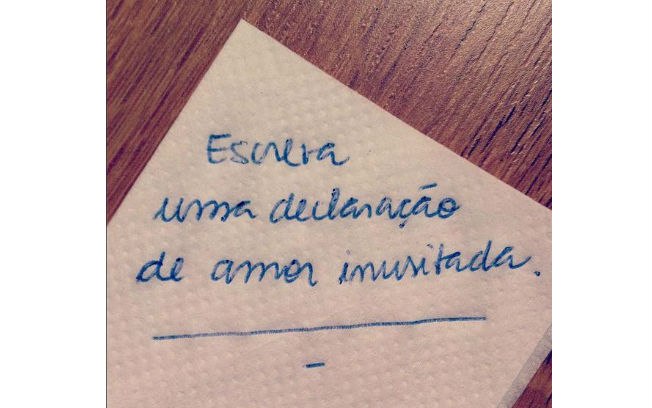 Escreva
uma declaração
de amor inusitada.